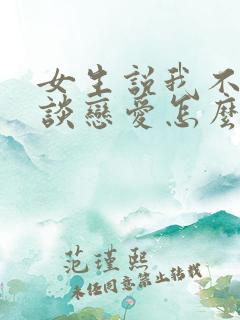 女生說我不
談戀愛怎麼
范瑾熙
未經同意禁止轉載